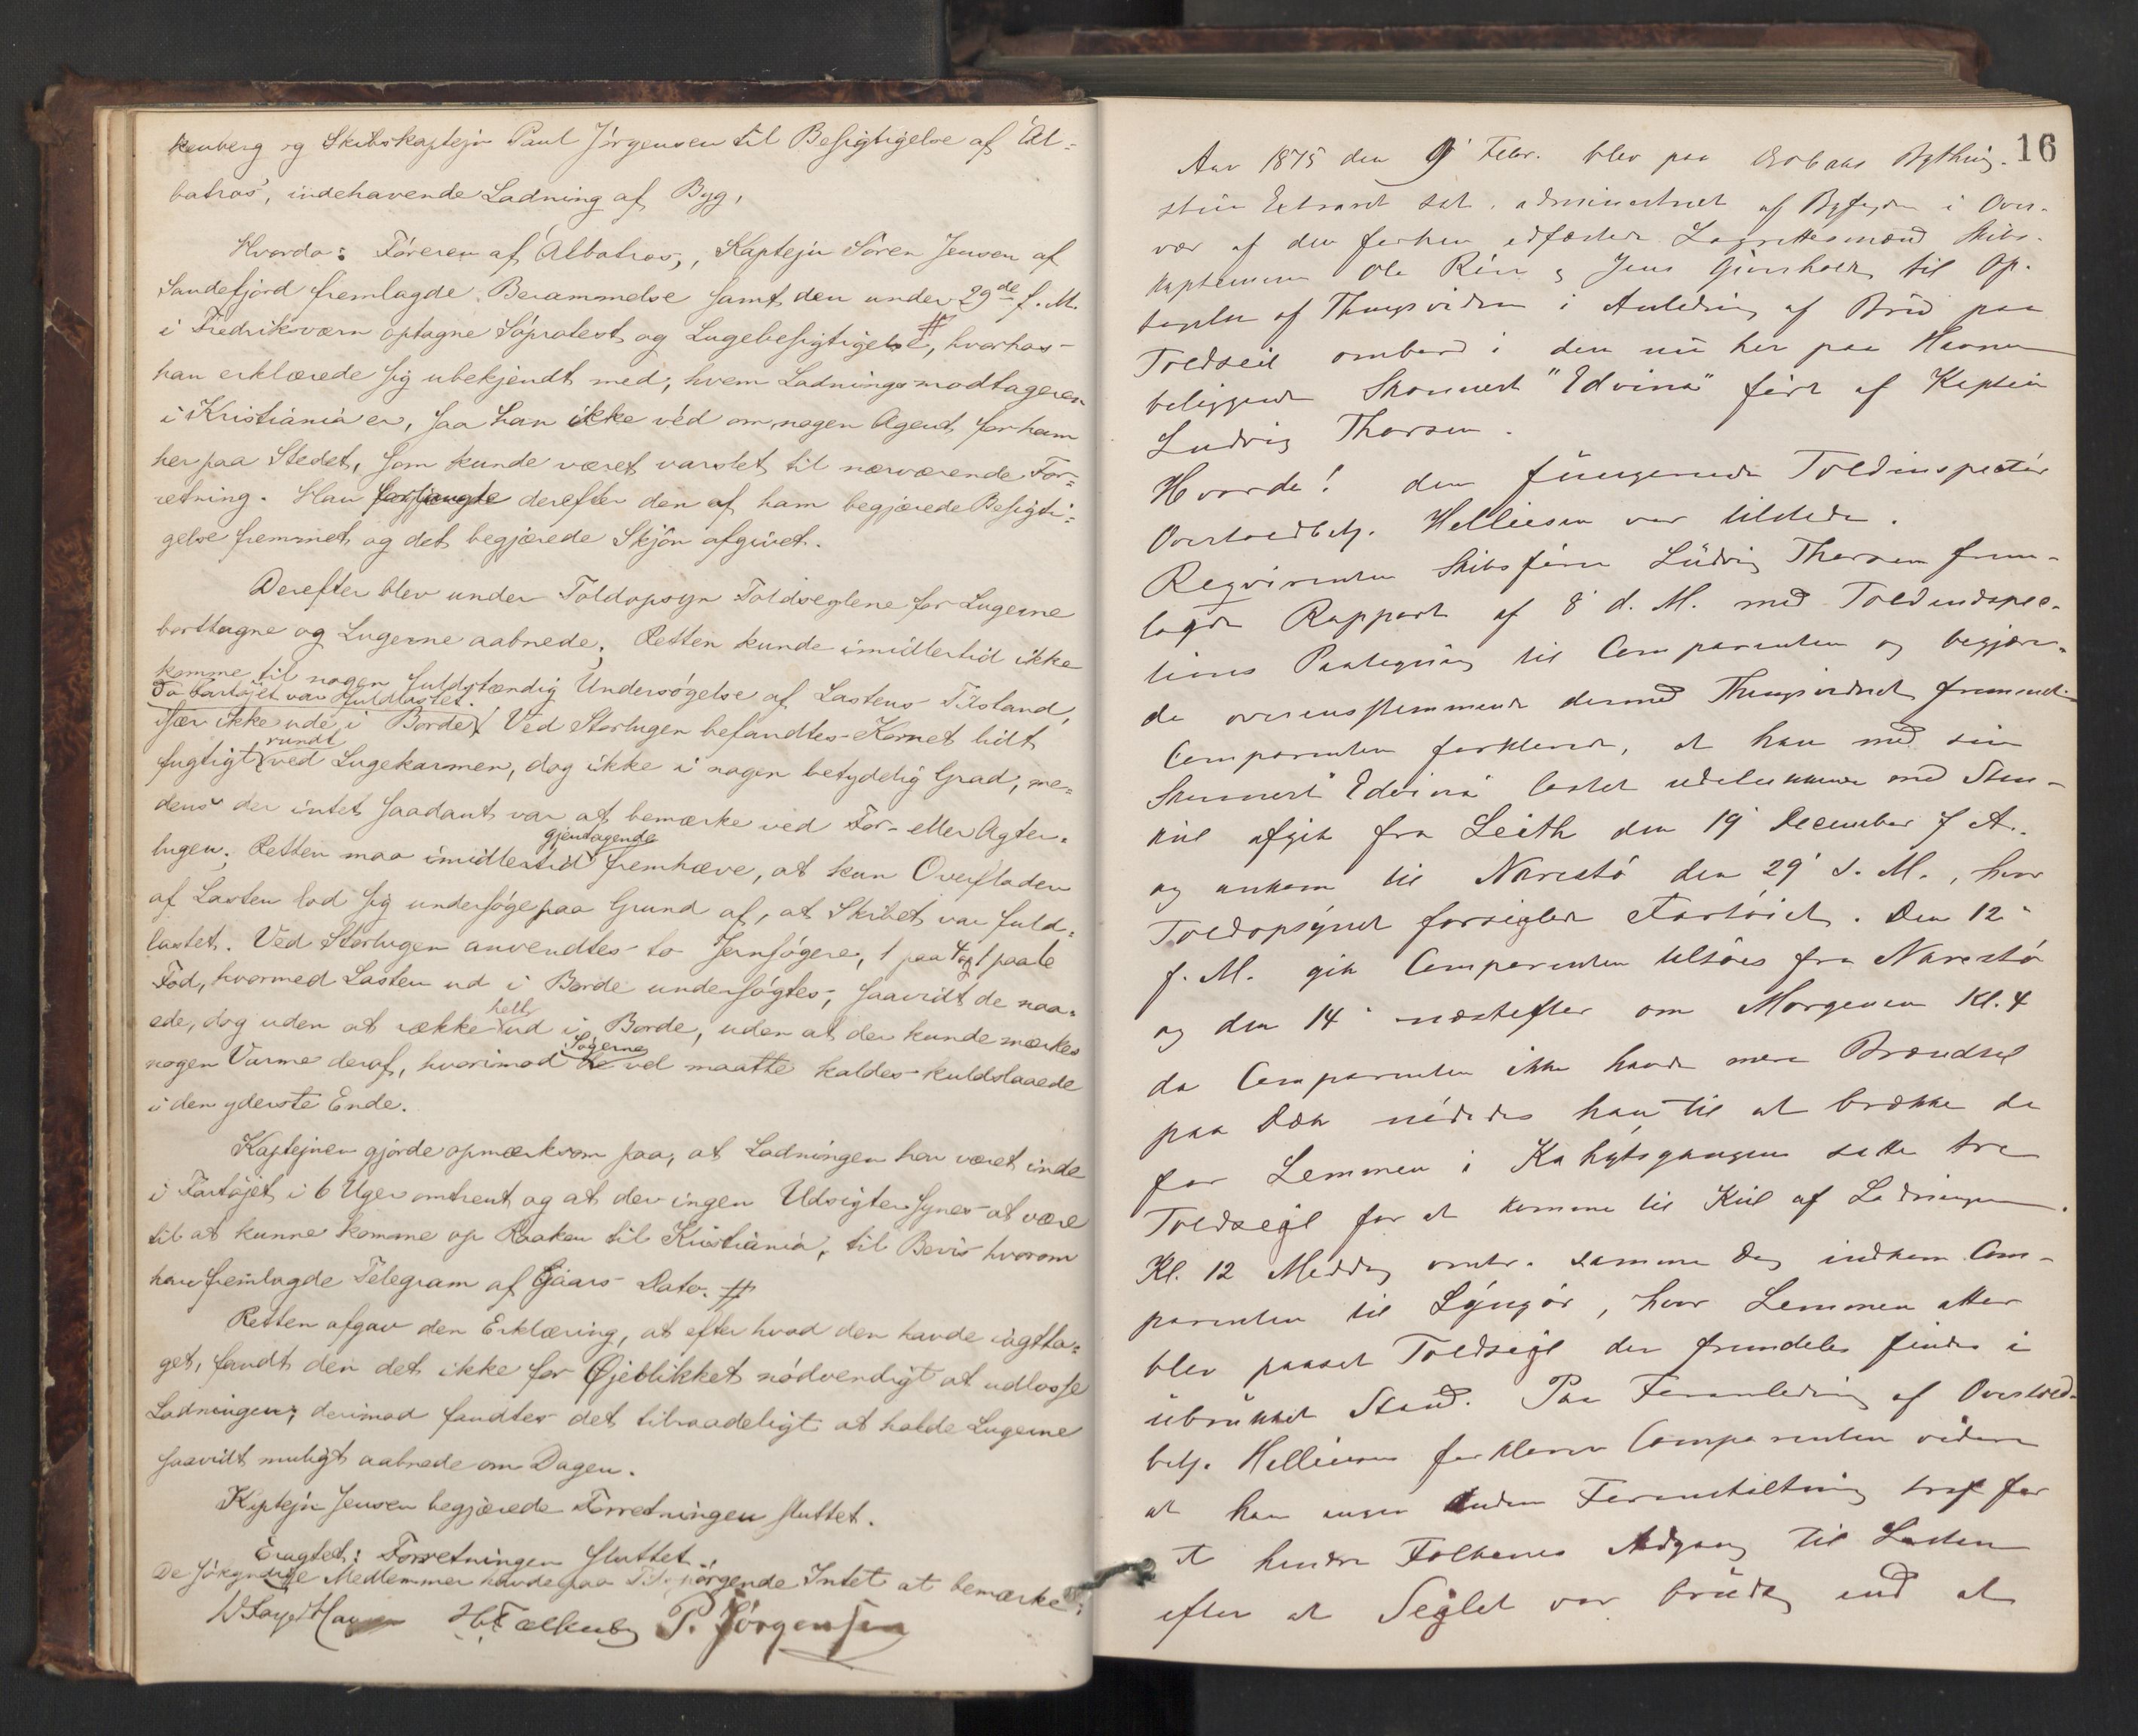 kenberg og Skibskaptejn Paul Jørgensen til Besigtigelse af "Al-
batros", indehavende Ladning af Byg,
Hvorda: Føreren af "Albatros", Kaptejn Søren Jensen af
Sandefjord fremlagde Berammelse samt den under 29de f. M.
i Fredriksværn optagne Søprotest og Lugebesigtigelse #, hvorhos
han erklærede sig ubekjendt med, hvem Ladningsmodtageren
i Kristiania er, saa han ikke véd om nogen Agent for ham
her paa Stedet, som kunde været varslet til nærværende For-
retning. Han derefter den af ham begjærede Besigti-
gelse fremmet og det begjærede Skjøn afgivet.
Derefter blev under Toldopsyn Toldseglene for Lugerne
borttagne og Lugerne aabnede; Retten kunde imidlertid ikke
komme til nogen fuldstændig Undersøgelse af Lastens Tilstand,
da Fartøjet var fuldlastet.
især ikke ude i Borde. Ved Storlugen befandtes Kornet lidt
rundt
fugtigt ved Lugekarmen, dog ikke i nogen betydelig Grad, me-
dens der intet saadant var at bemærke ved For- eller Agter-
gjentagende
lugen; Retten maa imidlertid fremhæve, at kun Overfladen
af Lasten lod sig undersøge paa Grund af, at Skibet var fuld-
lastet. Ved Storlugen anvendtes to Jernsøgere, 1 paa 4 og 1 paa 6
Fod, hvormed Lasten ud i Borde undersøgtes, saavidt de naa-
helt
ede, dog uden at række ud i Borde, uden at der kunde mærkes
Søgerne
nogen Varme deraf, hvorimod de vel maatte kaldes kuldslaaede
i den yderste Ende.
Kaptejnen gjorde opmærksom paa, at Ladningen har været inde
i Fartøjet i 6 Uger omtrent og at der ingen Udsigter synes at være
til at kunne komme op Raaken til Kristiania, til Bevis hvorom
han fremlagde Telegram af Gaars Dato. #
Retten afgav den Erklæring, at efter hvad den havde iagtta-
get, fandt den det ikke for Øjeblikket nødvendigt at udlosse
Ladningen; derimod fandtes det tilraadeligt at holde Lugerne
saavidt muligt aabnede om Dagen.
Kaptejn Jensen begjærede Forretningen sluttet.
Eragtet: Forretningen sluttet.
De søkyndige Medlemmer havde paa Tilspørgende Intet at bemærke:
P. Jørgensen
16
Aar 1875 den 9' Febr. blev paa Bything-
stue Extraret sat, administreret af Byfogden i Over-
vær af den forhen edfæstede Lagrettesmænd Skibs-
kapteinene Ole og Jens til Op-
tagelse af Thingsvidne i Anledning af Brud paa
Toldseil ombord i den nu her paa Havnen
beliggende Skonnert "Edvina" ført af Kaptein
Ludvig Thorsen.
Hvorda! den fungerende Toldinspectør
Overtoldbetj. Helliesen var tilstede.
Reqvirenten Skibsfører Ludvig Thorsen frem-
lagde Rapport af 8' d. M. med Toldindspec-
tions Paategning til Comparenten og begjære-
de overensstemmende dermed Thingsvidnet fremmet
Comparenten forklared, at han med sin
Skonnert "Edvina" lastet udelukkende med Sten-
kul afgik fra Leith den 19' December f. A.
og ankom til Narestø den 29' s. M., hvor
Toldopsynet forseglede Fartøiet. Den 12'
f. M. gik Comparenten tilsøes fra Narestø
og den 14' næstefter om Morgenen Kl. 4
da Comparenten ikke havde mere Brændsel
paa Dæk nødedes han til at brække de
for Lemmen i Kahytsgangen satte tre
Toldsegl for at komme til Kul af Ladningen.
Kl. 12 Middag omtr. samme Dag indkom Com-
parenten til Lyngør, hvor Lemmen atter
blev paasat Toldsegl der fremdeles findes i
ubrukket Stand. Paa Foranledning af Overtold-
betj. Helliesen forklarer Comparenten videre
at han ingen anden Foranstaltning traf for
at hindre Folkenes Adgang til Lasten
efter at Seglet var brudt, end at